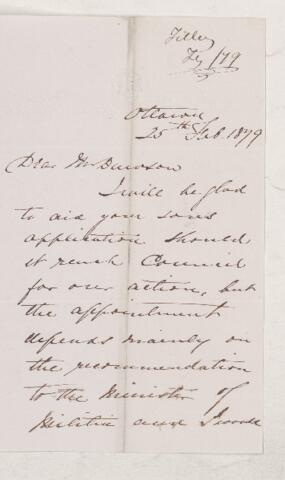 Tilley
Fy /79
Ottawa
25th Feb 1879
Dear Mr Dawson
I will be glad
to aid your sons
application should
it reach Council
for our action, but
the appointment
depends mainly on
the recommendation
to the Minister of
Militia and I would